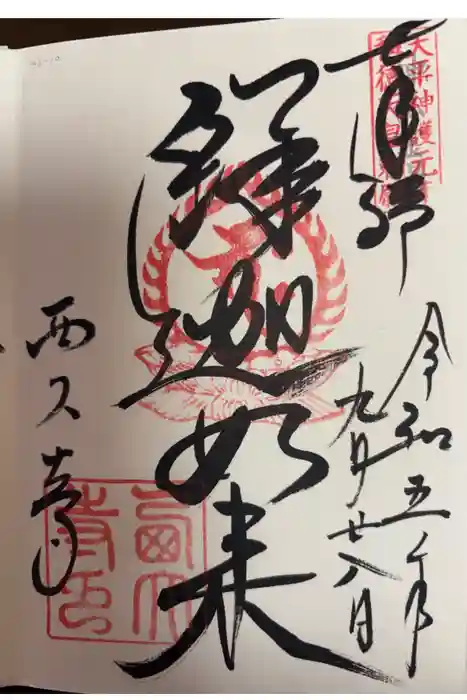 天平神護元年
南都
令和五年
九月廿八日
釋迦如来
西大寺
西大寺印